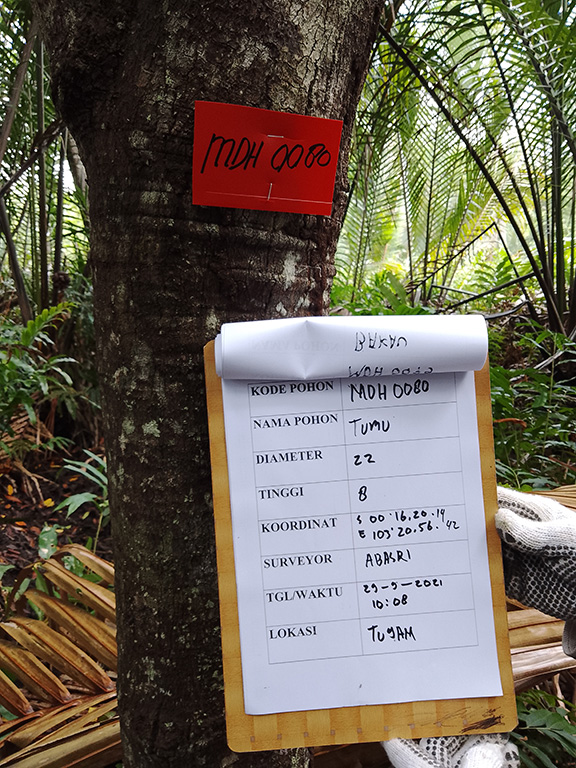 MDH 0080
BAKAU
MDH 0080
KODE POHON MDH 0080
NAMA POHON TUMU
DIAMETER 22
TINGGI 8
KOORDINAT S 00°16.20.19
E 103°20.56.42
SURVEYOR ABASRI
TGL/WAKTU 29-9-2021
10:08
LOKASI TUJAM